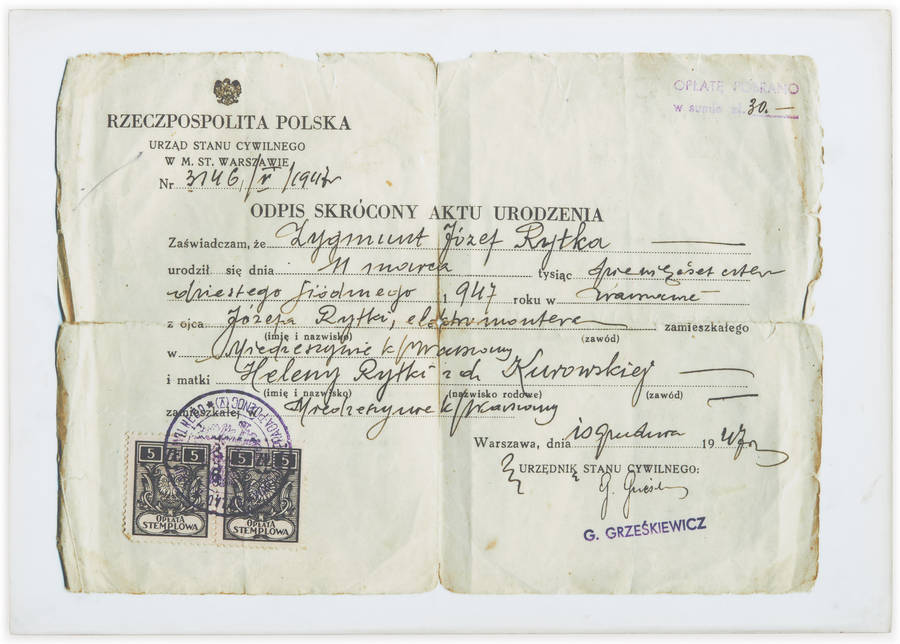 OPŁATĘ POBRANO
w sumie zł. 30.—
RZECZPOSPOLITA POLSKA
URZĄD STANU CYWILNEGO
W M. ST. WARSZAWIE
Nr 3146/V/1947
ODPIS SKRÓCONY AKTU URODZENIA
Zaświadczam, że Zygmunt Józef Rytka
urodził się dnia 11 marca tysiąc dziewięćset czter
dziestego siódmego 1947 roku w Warszawie
z ojca Józefa Rytki, elektromontera zamieszkałego
(imię i nazwisko) (zawód)
w Miedzeszynie k/Warszawy
i matki Heleny Rytki z d. Kurowskiej
(imię i nazwisko) (nazwisko rodowe) (zawód)
zamieszkałej Miedzeszynie k/Warszawy
Warszawa, dnia 10 grudnia 1947 r
URZĘDNIK STANU CYWILNEGO:
G. GRZEŚKIEWICZ
5 ZŁ 5 5 ZŁ 5
OPŁATA OPŁATA
STEMPLOWA STEMPLOWA